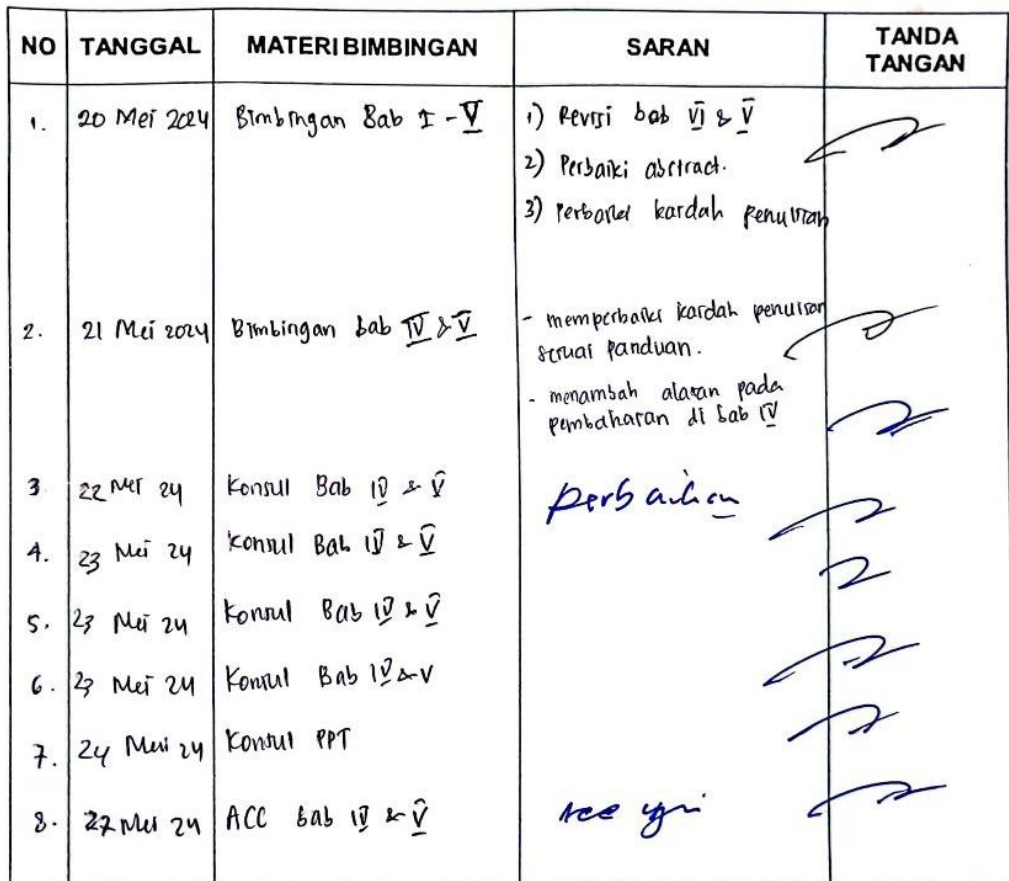 NO TANGGAL MATERI BIMBINGAN SARAN TANDA TANGAN
1. 20 Mei 2024 Bimbingan Bab I - V 1) Revisi bab VI & V
2) Perbaiki abstract.
3) kardah penulisan
2. 21 Mei 2024 Bimbingan bab IV & V - memperbaiki kardah penulisan
sesuai panduan.
- menambah alasan pada
pembahasan di bab IV
3 22 Mei 24 Konsul Bab IV & V perbaikan
4. 23 Mei 24 Konsul Bab IV & V
5. 23 Mei 24 Konsul Bab IV & V
6. 23 Mei 24 Konsul Bab IV & V
7. 24 Mei 24 Konsul PPT
8. 27 Mei 24 ACC bab IV & V Acc